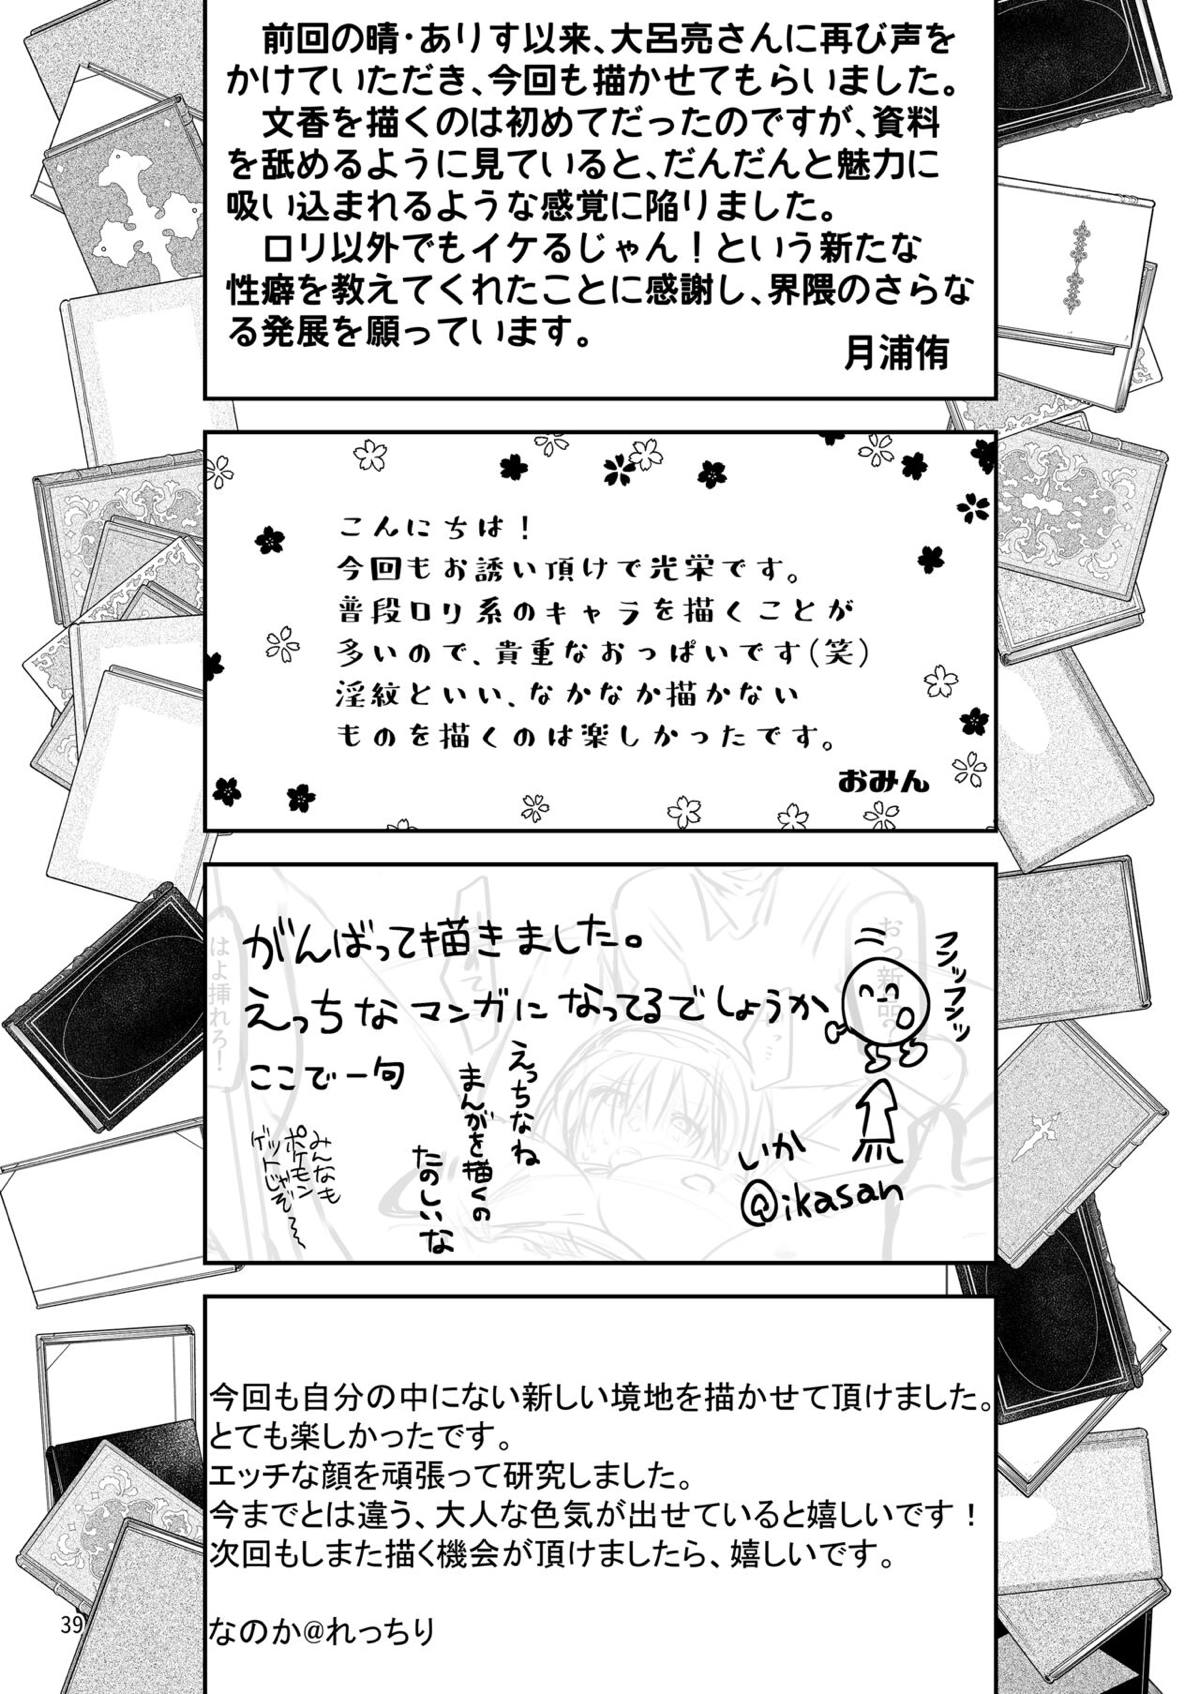 前回の晴・ありす以来、大呂亮さんに再び声を
かけていただき、今回も描かせてもらいました。
文香を描くのは初めてだったのですが、資料
を舐めるように見ていると、だんだんと魅力に
吸い込まれるような感覚に陥りました。
ロリ以外でもイケるじゃん！という新たな
性癖を教えてくれたことに感謝し、界隈のさらな
る発展を願っています。
月浦侑
こんにちは！
今回もお誘い頂けて光栄です。
普段ロリ系のキャラを描くことが
多いので、貴重なおっぱいです(笑)
淫紋といい、なかなか描かない
ものを描くのは楽しかったです。
おみん
がんばって描きました。
えっちなマンガになってるでしょうか
ここで一句
えっちなね
まんがを描くの
たのしいな
みんなも
ポケモン
ゲットじゃぞ～
フンッフンッ
おっ新品？
はよ挿れろ！
いか
@ikasan
今回も自分の中にない新しい境地を描かせて頂けました。
とても楽しかったです。
エッチな顔を頑張って研究しました。
今までとは違う、大人な色気が出せていると嬉しいです！
次回もしまた描く機会が頂けましたら、嬉しいです。
なのか@れっちり
39